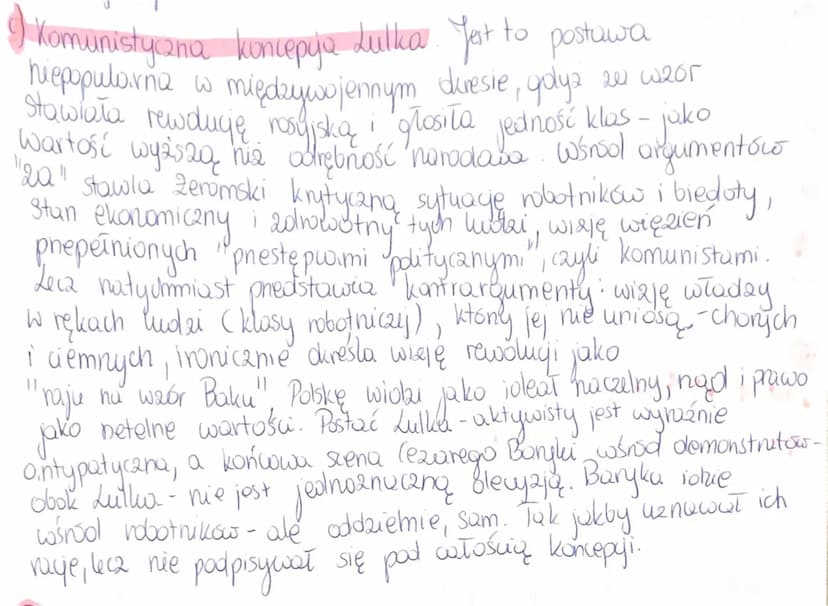 c) Komunistyczna koncepcja Lulka. Jest to postawa
niepopularna w międzywojennym okresie, gdyż za wzór
stawiała rewolucję rosyjską i głosiła jedność klas - jako
wartość wyższą niż odrębność narodowa. Wśród argumentów
"za" stawia Żeromski krytyczną sytuację robotników i biedoty,
stan ekonomiczny i zdrowotny tych ludzi, wizję więzień
przepełnionych "przestępcami politycznymi", czyli komunistami.
Lecz natychmiast przedstawia kontrargumenty: wizję władzy
w rękach ludzi (klasy robotniczej), którzy jej nie uniosą - chorych
i ciemnych, ironicznie określa wizję rewolucji jako
"raju na wzór Baku", Polskę widzi jako ideał naczelny, rząd i prawo
jako rzetelne wartości. Postać Lulka - aktywisty jest wyraźnie
antypatyczna, a końcowa scena Cezarego Baryki wśród demonstratów -
obok Lulka - nie jest jednoznaczną decyzją. Baryka idzie
wśród robotników - ale oddzielnie, sam. Tak jakby uznawał ich
racje, lecz nie podpisywał się pod całością koncepcji.